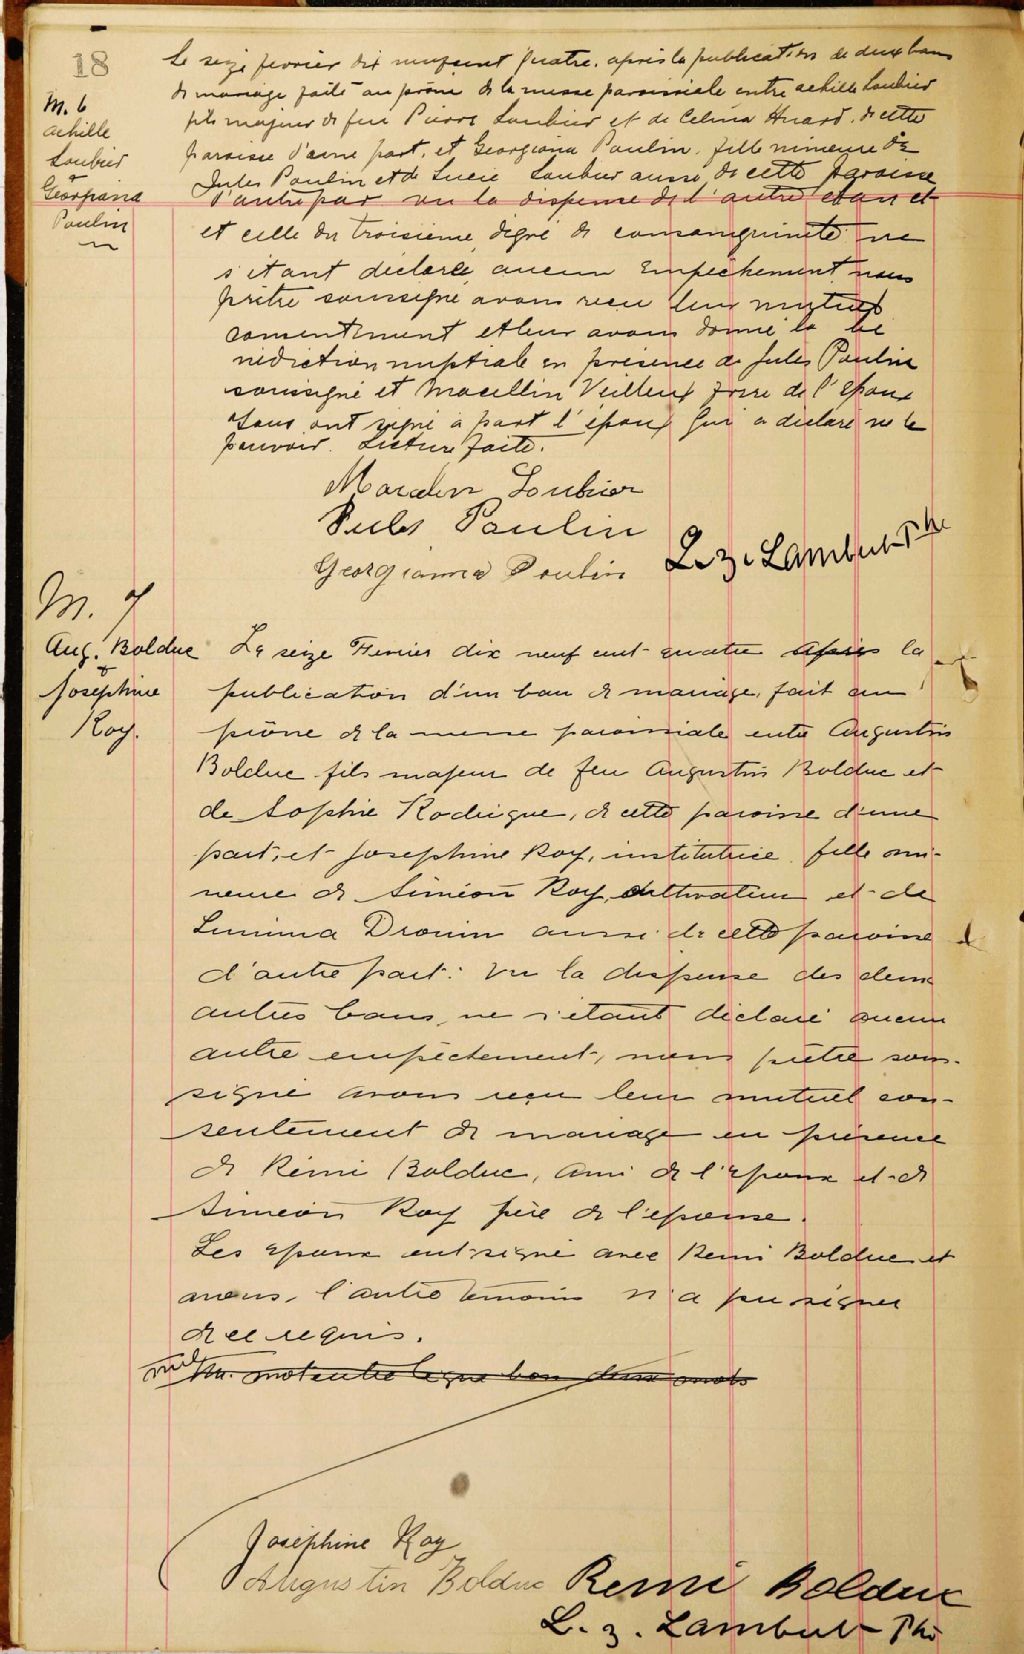 18
M. 6
Achille
Loubier
+
Georgiana
Poulin
Le seize fevrier dix neuf cent quatre, après la publication de deux bans
de mariage faite au prône de la messe paroissiale entre achille Loubier
fils majeur de feu Pierre Loubier et de Celina Huard, de cette
paroisse d'une part, et Georgiana Poulin, fille mineure de
Jules Poulin et de Lucie Loubier aussi de cette paroisse
d'autre part vu la dispense de l'autre ban et
et celle du troisième degré de consanguinité ne
s'étant déclaré aucun empêchement nous
prêtre soussigné, avons reçu leur mutuel
consentement et leur avons donné la bé
nédiction nuptiale en présence de Jules Poulin
soussigné et Marcellin Veilleux frère de l'époux
Tous ont signé à part l'époux qui a déclaré ne le
pouvoir. Lecture faite.
Marcelin Loubier
Jules Poulin
Georgianna Poulin
L. Z. Lambert Ptre
M. 7
Aug. Bolduc
+
Josephine
Roy.
Le seize Fevrier dix neuf cent quatre après la
publication d'un ban de mariage, fait au
prône de la messe paroissiale entre Augustin
Bolduc fils majeur de feu Augustin Bolduc et
de Sophie Rodrigue, de cette paroisse d'une
part, et Josephine Roy, institutrice, fille mi-
neure de Siméon Roy, cultivateur et de
Lumina Drouin aussi de cette paroisse
d'autre part: Vu la dispense des deux
autres bans, ne s'étant déclaré aucun
autre empêchement, nous prêtre sous-
signé avons reçu leur mutuel con-
sentement de mariage en présence
de Rémi Bolduc, ami de l'epoux et de
Siméon Roy père de l'epouse.
Les epoux ont signé avec Remi Bolduc et
nous, l'autre témoin n'a pu signer
de ce requis.
mot entre ligne bon deux mots
Joséphine Roy
Augustin Bolduc
Remi Bolduc
L. Z. Lambert Ptre